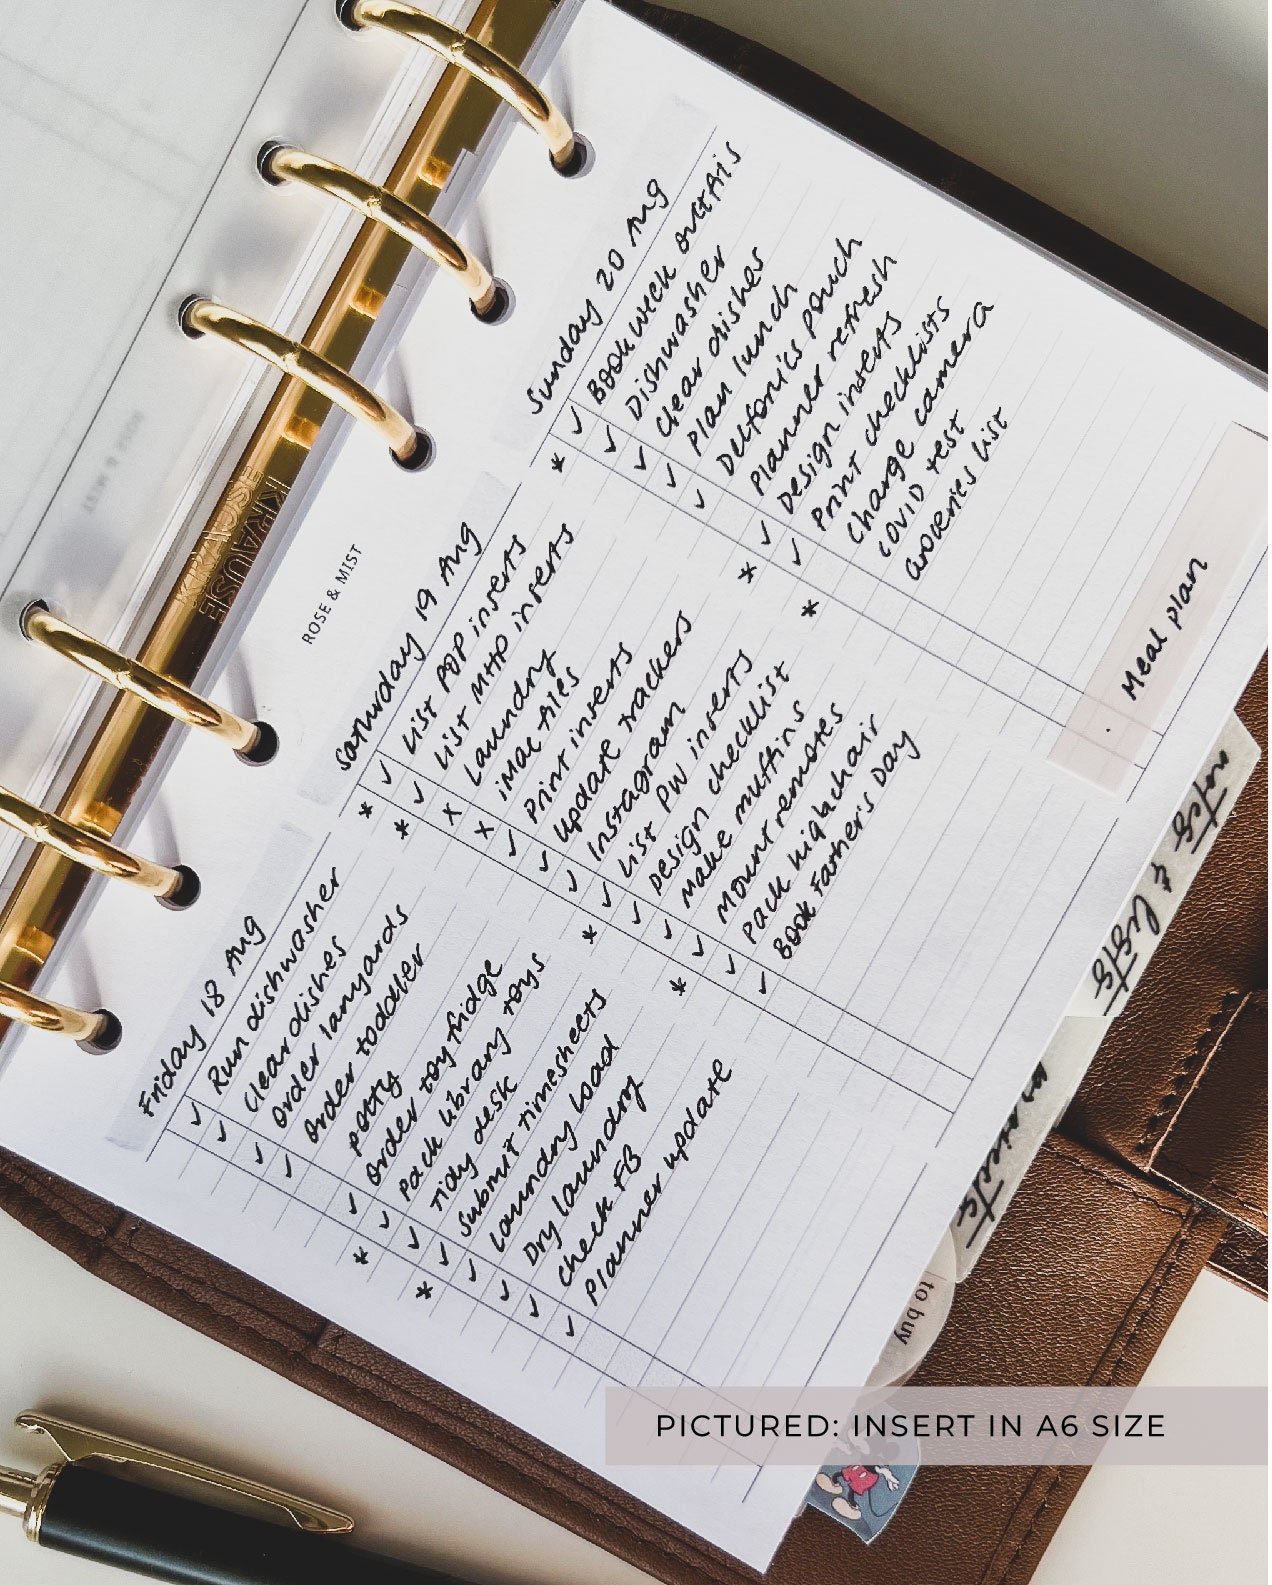 Friday 18 Aug
✓ Run dishwasher
✓ Clear dishes
✓ Order lanyards
✓ Order toddler
potty
✓ Order toy fridge
✓ Pack library toys
* ✓ Tidy desk
✓ Submit timesheets
* ✓ Laundry load
✓ Dry laundry
✓ Check FB
✓ Planner update
Saturday 19 Aug
* ✓ List POP inserts
* ✓ List MHP inserts
x Laundry
x iMac files
✓ Print inserts
✓ Update trackers
✓ Instagram
* ✓ List PW inserts
✓ Design checklist
✓ Make muffins
* ✓ Mount remotes
✓ Pack highchair
✓ Book Father's Day
Sunday 20 Aug
✓ Bookweek outfits
* ✓ Dishwasher
✓ Clear dishes
✓ Plan lunch
✓ Delfonics pouch
Planner refresh
* ✓ Design inserts
✓ Print checklists
* Charge camera
COVID test
Groceries list
Meal plan
ROSE & MIST
KRAUSE
notes & lists
to buy
PICTURED: INSERT IN A6 SIZE